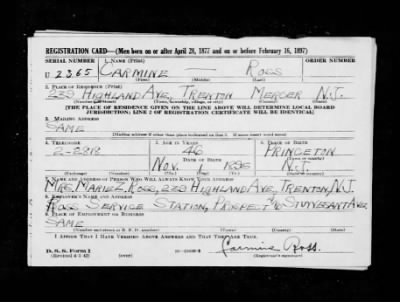 REGISTRATION CARD—(Men born on or after April 28, 1877 and on or before February 16, 1897)
SERIAL NUMBER 1. NAME (Print) ORDER NUMBER
U 2365 CARMINE — ROSS
(First) (Middle) (Last)
2. PLACE OF RESIDENCE (Print)
229 HIGHLAND AVE, TRENTON MERCER N.J.
(Number and street) (Town, township, village, or city) (County) (State)
[THE PLACE OF RESIDENCE GIVEN ON THE LINE ABOVE WILL DETERMINE LOCAL BOARD
JURISDICTION; LINE 2 OF REGISTRATION CERTIFICATE WILL BE IDENTICAL]
3. MAILING ADDRESS
SAME
(Mailing address if other than place indicated on line 2. If same insert word same)
4. TELEPHONE 5. AGE IN YEARS 6. PLACE OF BIRTH
2-2818 46 PRINCETON
DATE OF BIRTH
NOV. 1 1895 N.J.
(Exchange) (Number) (Mo.) (Day) (Yr.) (State or country)
7. NAME AND ADDRESS OF PERSON WHO WILL ALWAYS KNOW YOUR ADDRESS
MRS. MARIE Z. ROSS, 229 HIGHLAND AVE, TRENTON, N.J.
8. EMPLOYER'S NAME AND ADDRESS
ROSS SERVICE STATION, PROSPECT & STUYVESANT AVE.
9. PLACE OF EMPLOYMENT OR BUSINESS
SAME
(Number and street or R. F. D. number) (Town) (County) (State)
I AFFIRM THAT I HAVE VERIFIED ABOVE ANSWERS AND THAT THEY ARE TRUE.
D. S. S. Form 1
(Revised 4-1-42) Carmine Ross.
(Registrant's signature)